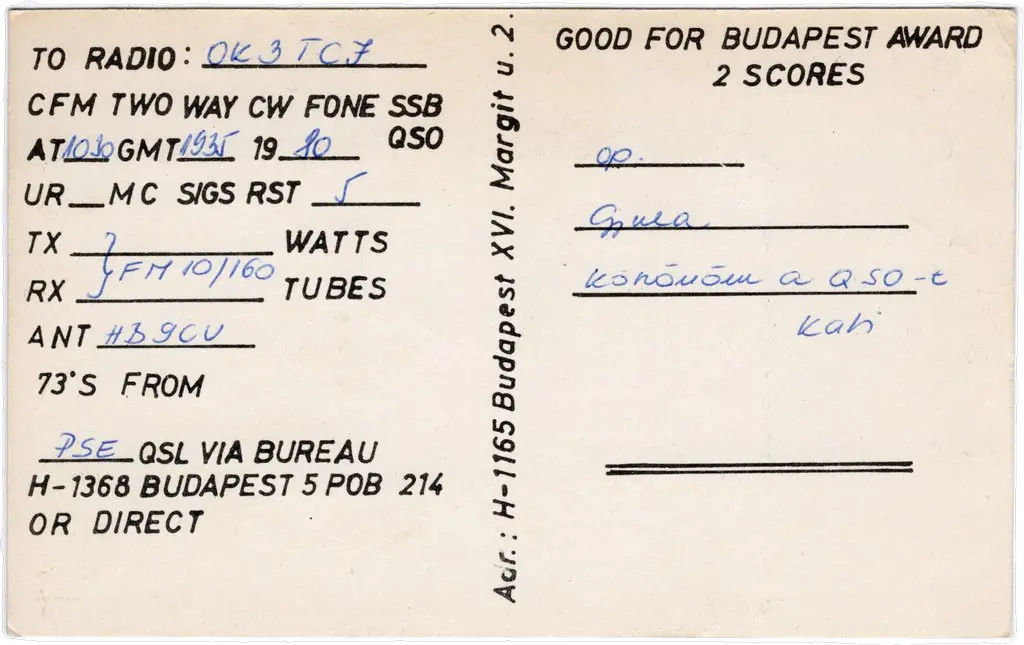 TO RADIO: OK3TCF
CFM TWO WAY CW FONE SSB
AT 1030 GMT 1935 19 80 QSO
UR MC SIGS RST 5
TX WATTS
FM 10/160
RX TUBES
ANT HB9CV
73'S FROM
PSE QSL VIA BUREAU
H-1368 BUDAPEST 5 POB 214
OR DIRECT
Adr.: H-1165 Budapest XVI. Margit u. 2.
GOOD FOR BUDAPEST AWARD
2 SCORES
op.
Gyula
Köszönöm a QSO-t
Kati